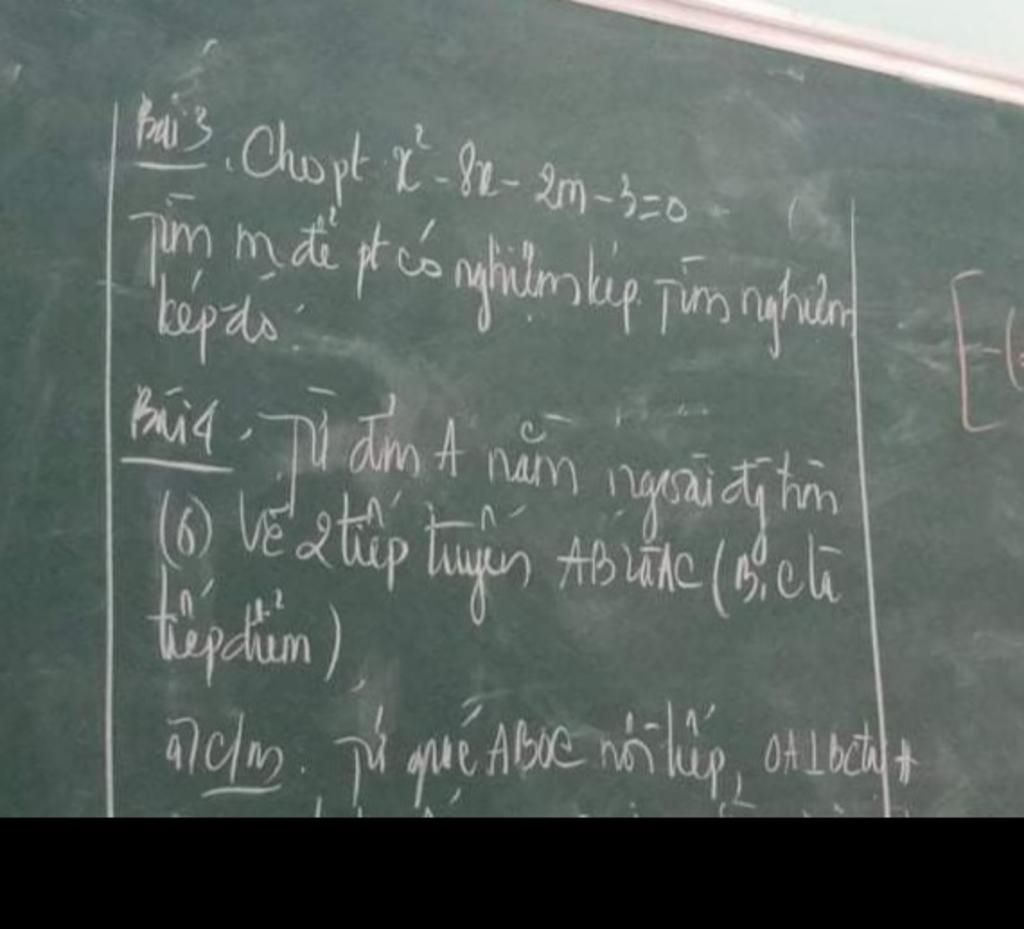 Bài 3. Cho pt x² - 8x - 2m - 3 = 0
Tìm m để pt có nghiệm kép. Tìm nghiệm
kép đó.
Bài 4. Từ đm A nằm ngoài đg tròn
(O) Vẽ 2 tiếp tuyến AB và AC (B, C là
tiếp điểm),
a/ c/m. Tứ giác ABOC nội tiếp, OA ⊥ BC tại H